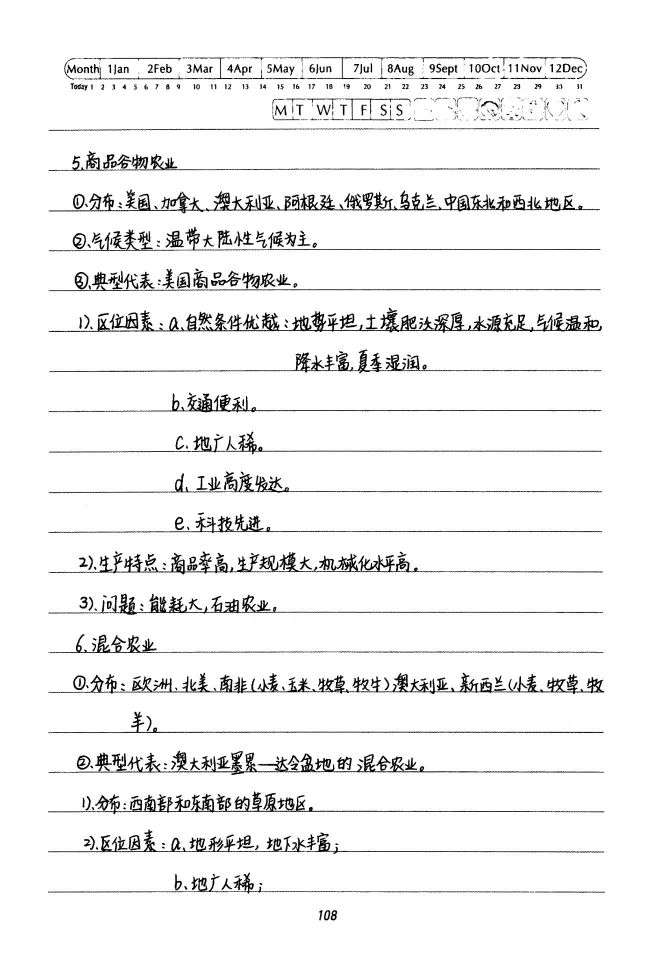 Month 1Jan 2Feb 3Mar 4Apr 5May 6Jun 7Jul 8Aug 9Sept 10Oct 11Nov 12Dec
Today 1 2 3 4 5 6 7 8 9 10 11 12 13 14 15 16 17 18 19 20 21 22 23 24 25 26 27 28 29 30 31
M T W T F S S
5、商品谷物农业
①、分布:美国、加拿大、澳大利亚、阿根廷、俄罗斯、乌克兰、中国东北和西北地区。
②、气候类型:温带大陆性气候为主。
③、典型代表:美国商品谷物农业。
1)、区位因素:a、自然条件优越:地势平坦,土壤肥沃深厚,水源充足,气候温和,
降水丰富,夏季湿润。
b、交通便利。
c、地广人稀。
d、工业高度发达。
e、科技先进。
2)、生产特点:商品率高,生产规模大,机械化水平高。
3)、问题:能耗大,石油农业。
6、混合农业
①、分布:欧洲、北美、南非(小麦、玉米、牧草、牧牛)澳大利亚、新西兰(小麦、牧草、牧
羊)。
②、典型代表:澳大利亚墨累—达令盆地的混合农业。
1)、分布:西南部和东南部的草原地区。
2)、区位因素:a、地形平坦,地下水丰富;
b、地广人稀;
108